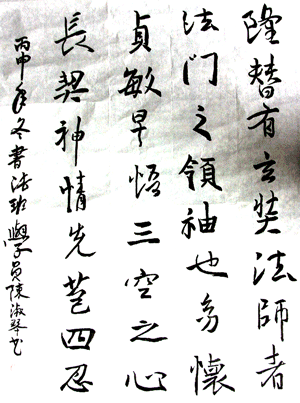 隆替有玄奘法師者
法门之領袖也多懷
貞敏早悟三空之心
長契神情先苞四忍
丙申年冬書法班學員陳淑琴书